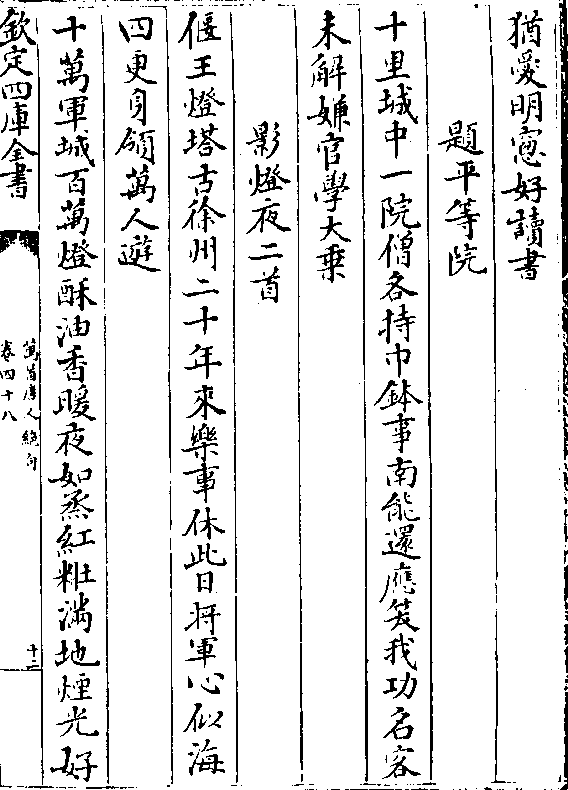 猶愛明窻好讀書
題平等院
十里城中一院僧各持巾鉢事南能還應笑我功名客
未解嫌官學大乗
影燈夜二首
偃王燈塔古徐州二十年來樂事休此日将軍心似海
四更身領萬人遊
十萬軍城百萬燈酥油香暖夜如烝紅粧滿地煙光好
欽定四庫全書
萬首唐人絶句
卷四十八
十二